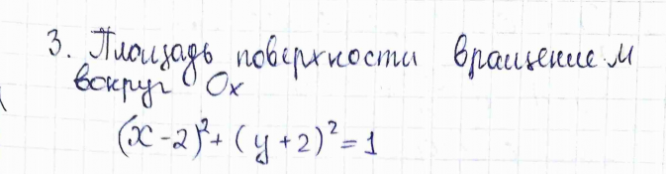 3. Площадь поверхности вращением
вокруг Ox
(x-2)²+(y+2)²=1